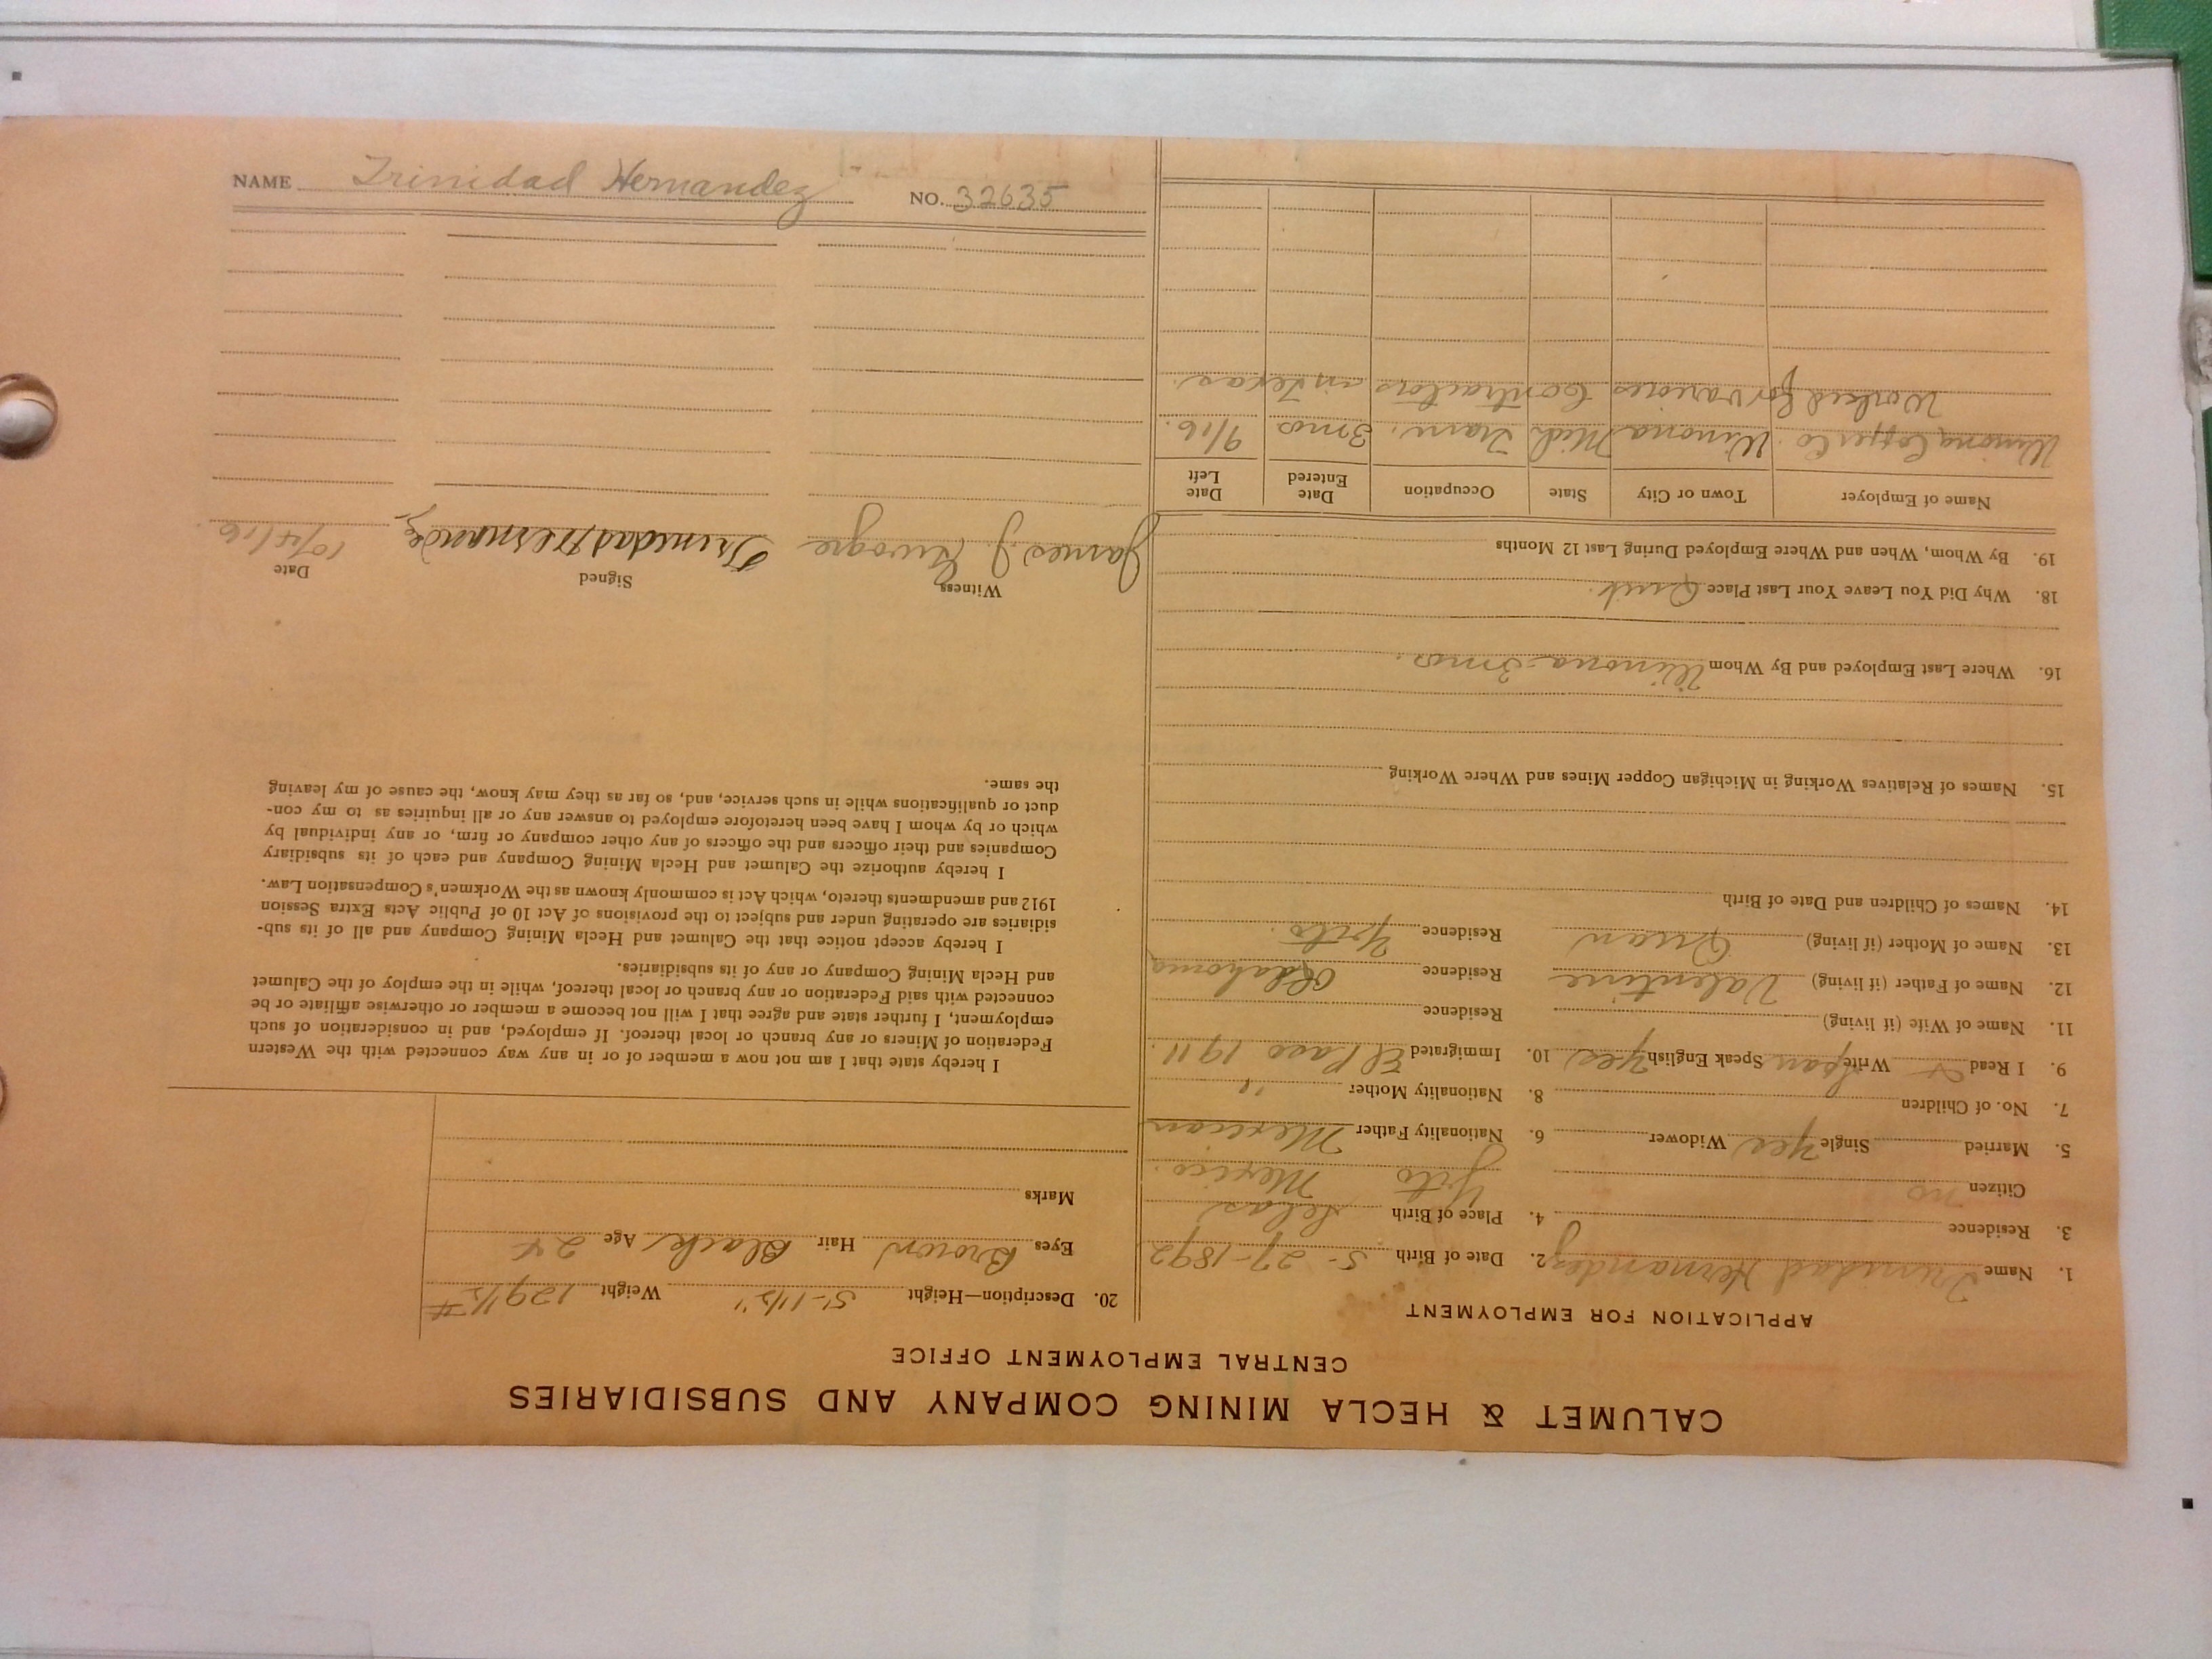 CALUMET & HECLA MINING COMPANY AND SUBSIDIARIES
CENTRAL EMPLOYMENT OFFICE
APPLICATION FOR EMPLOYMENT
1. Name Trinidad Hernandez 2. Date of Birth 5-27-1892
3. Residence 4. Place of Birth
Citizen no Mexico.
5. Married Single Yes Widower 6. Nationality Father Mexican
7. No. of Children 8. Nationality Mother "
9. I Read & Write Span Speak English Yes 10. Immigrated El Paso 1911.
11. Name of Wife (if living) Residence
12. Name of Father (if living) Valentine Residence Oklahoma
13. Name of Mother (if living) Residence
14. Names of Children and Date of Birth
15. Names of Relatives Working in Michigan Copper Mines and Where Working
16. Where Last Employed and By Whom Winona - 3 mos.
18. Why Did You Leave Your Last Place Quit.
19. By Whom, When and Where Employed During Last 12 Months
Name of Employer Town or City State Occupation Date Entered Date Left
Winona Copper Co. Winona Mich Tram. 3 mos 9/16.
Worked for various Contractors in Texas.
20. Description—Height 5'-1 1/2" Weight 129 1/2 #
Eyes Brown Hair Black Age 24
Marks
I hereby state that I am not now a member of or in any way connected with the Western
Federation of Miners or any branch or local thereof. If employed, and in consideration of such
employment, I further state and agree that I will not become a member or otherwise affiliate or be
connected with said Federation or any branch or local thereof, while in the employ of the Calumet
and Hecla Mining Company or any of its subsidiaries.
I hereby accept notice that the Calumet and Hecla Mining Company and all of its sub-
sidiaries are operating under and subject to the provisions of Act 10 of Public Acts Extra Session
1912 and amendments thereto, which Act is commonly known as the Workmen's Compensation Law.
I hereby authorize the Calumet and Hecla Mining Company and each of its subsidiary
Companies and their officers and the officers of any other company or firm, or any individual by
which or by whom I have been heretofore employed to answer any or all inquiries as to my con-
duct or qualifications while in such service, and, so far as they may know, the cause of my leaving
the same.
Witness Signed Date
James J. Trinidad Hernandez 10/4/16
NAME Trinidad Hernandez NO. 32635